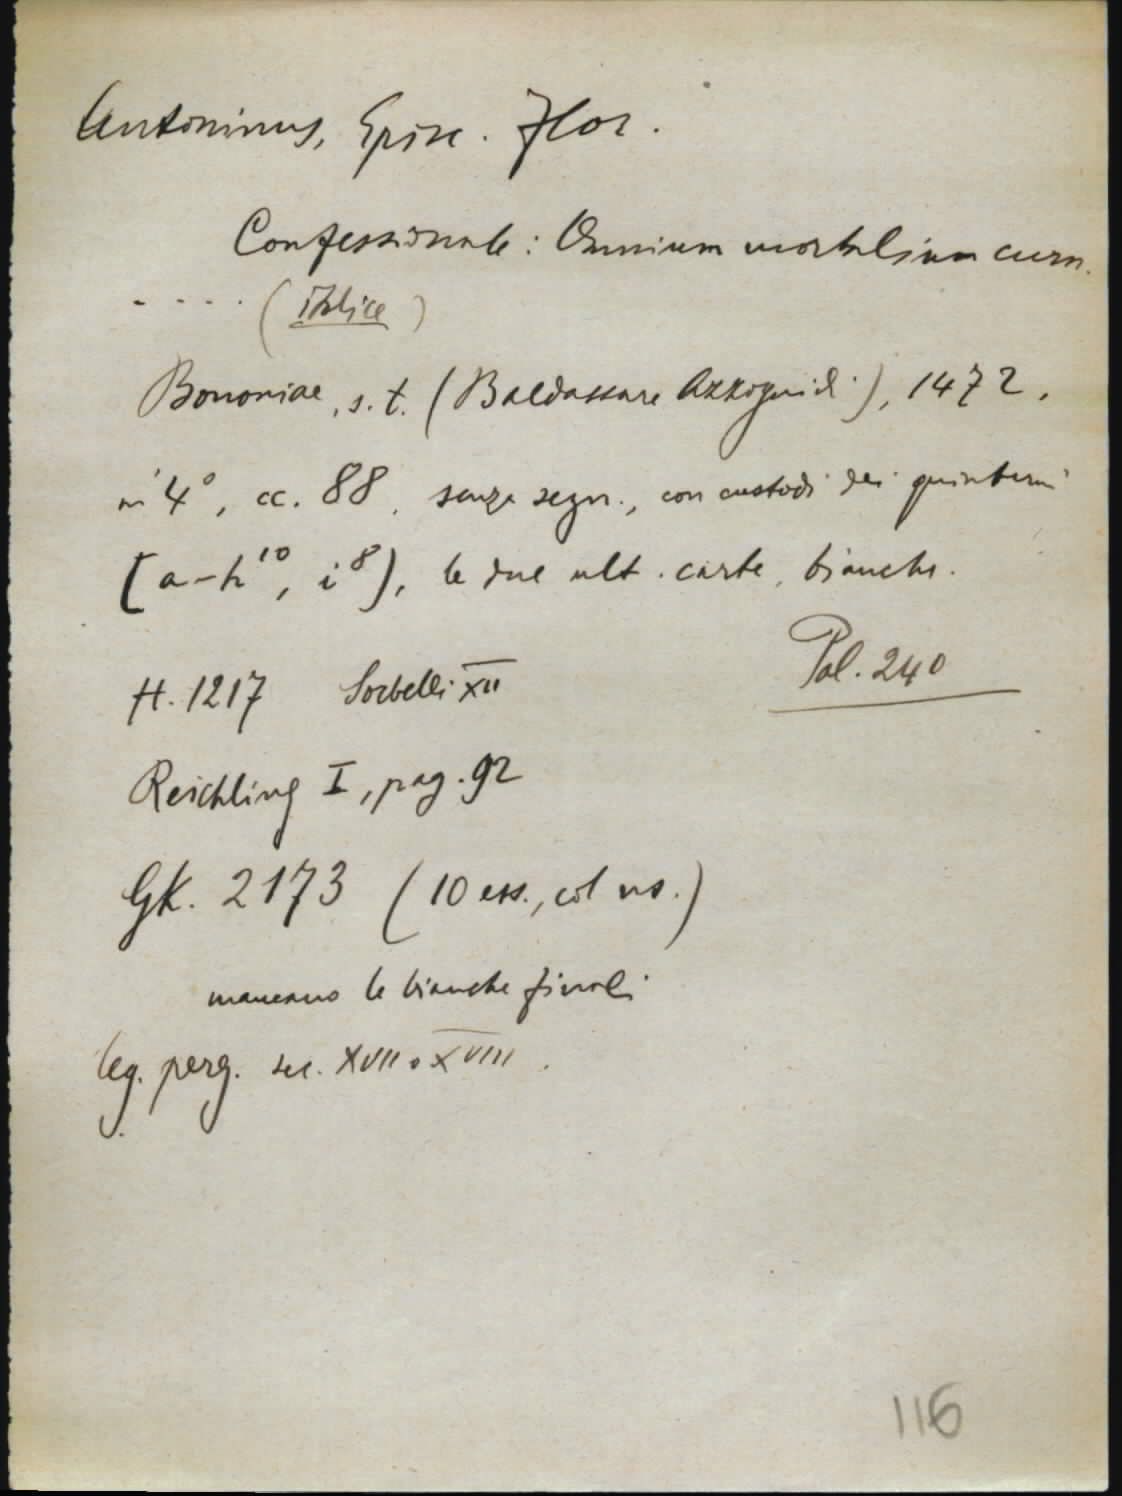 Antoninus, Episc. Flor.
Confessionale: Omnium mortalium cura.
- - - - . (italice)
Bononiae, s. t. (Baldassare Azzoguidi), 1472.
in 4°, cc. 88, senza segn., con custodi dei quinterni
[a-h¹⁰, i⁸), le due ult. carte, bianche.
Pal. 240
H. 1217 Sorbelli XII
Reichling I, pag. 92
GK. 2173 (10 ess., col ns.)
mancano le bianche finali
leg. perg. sec. XVII o XVIII.
116